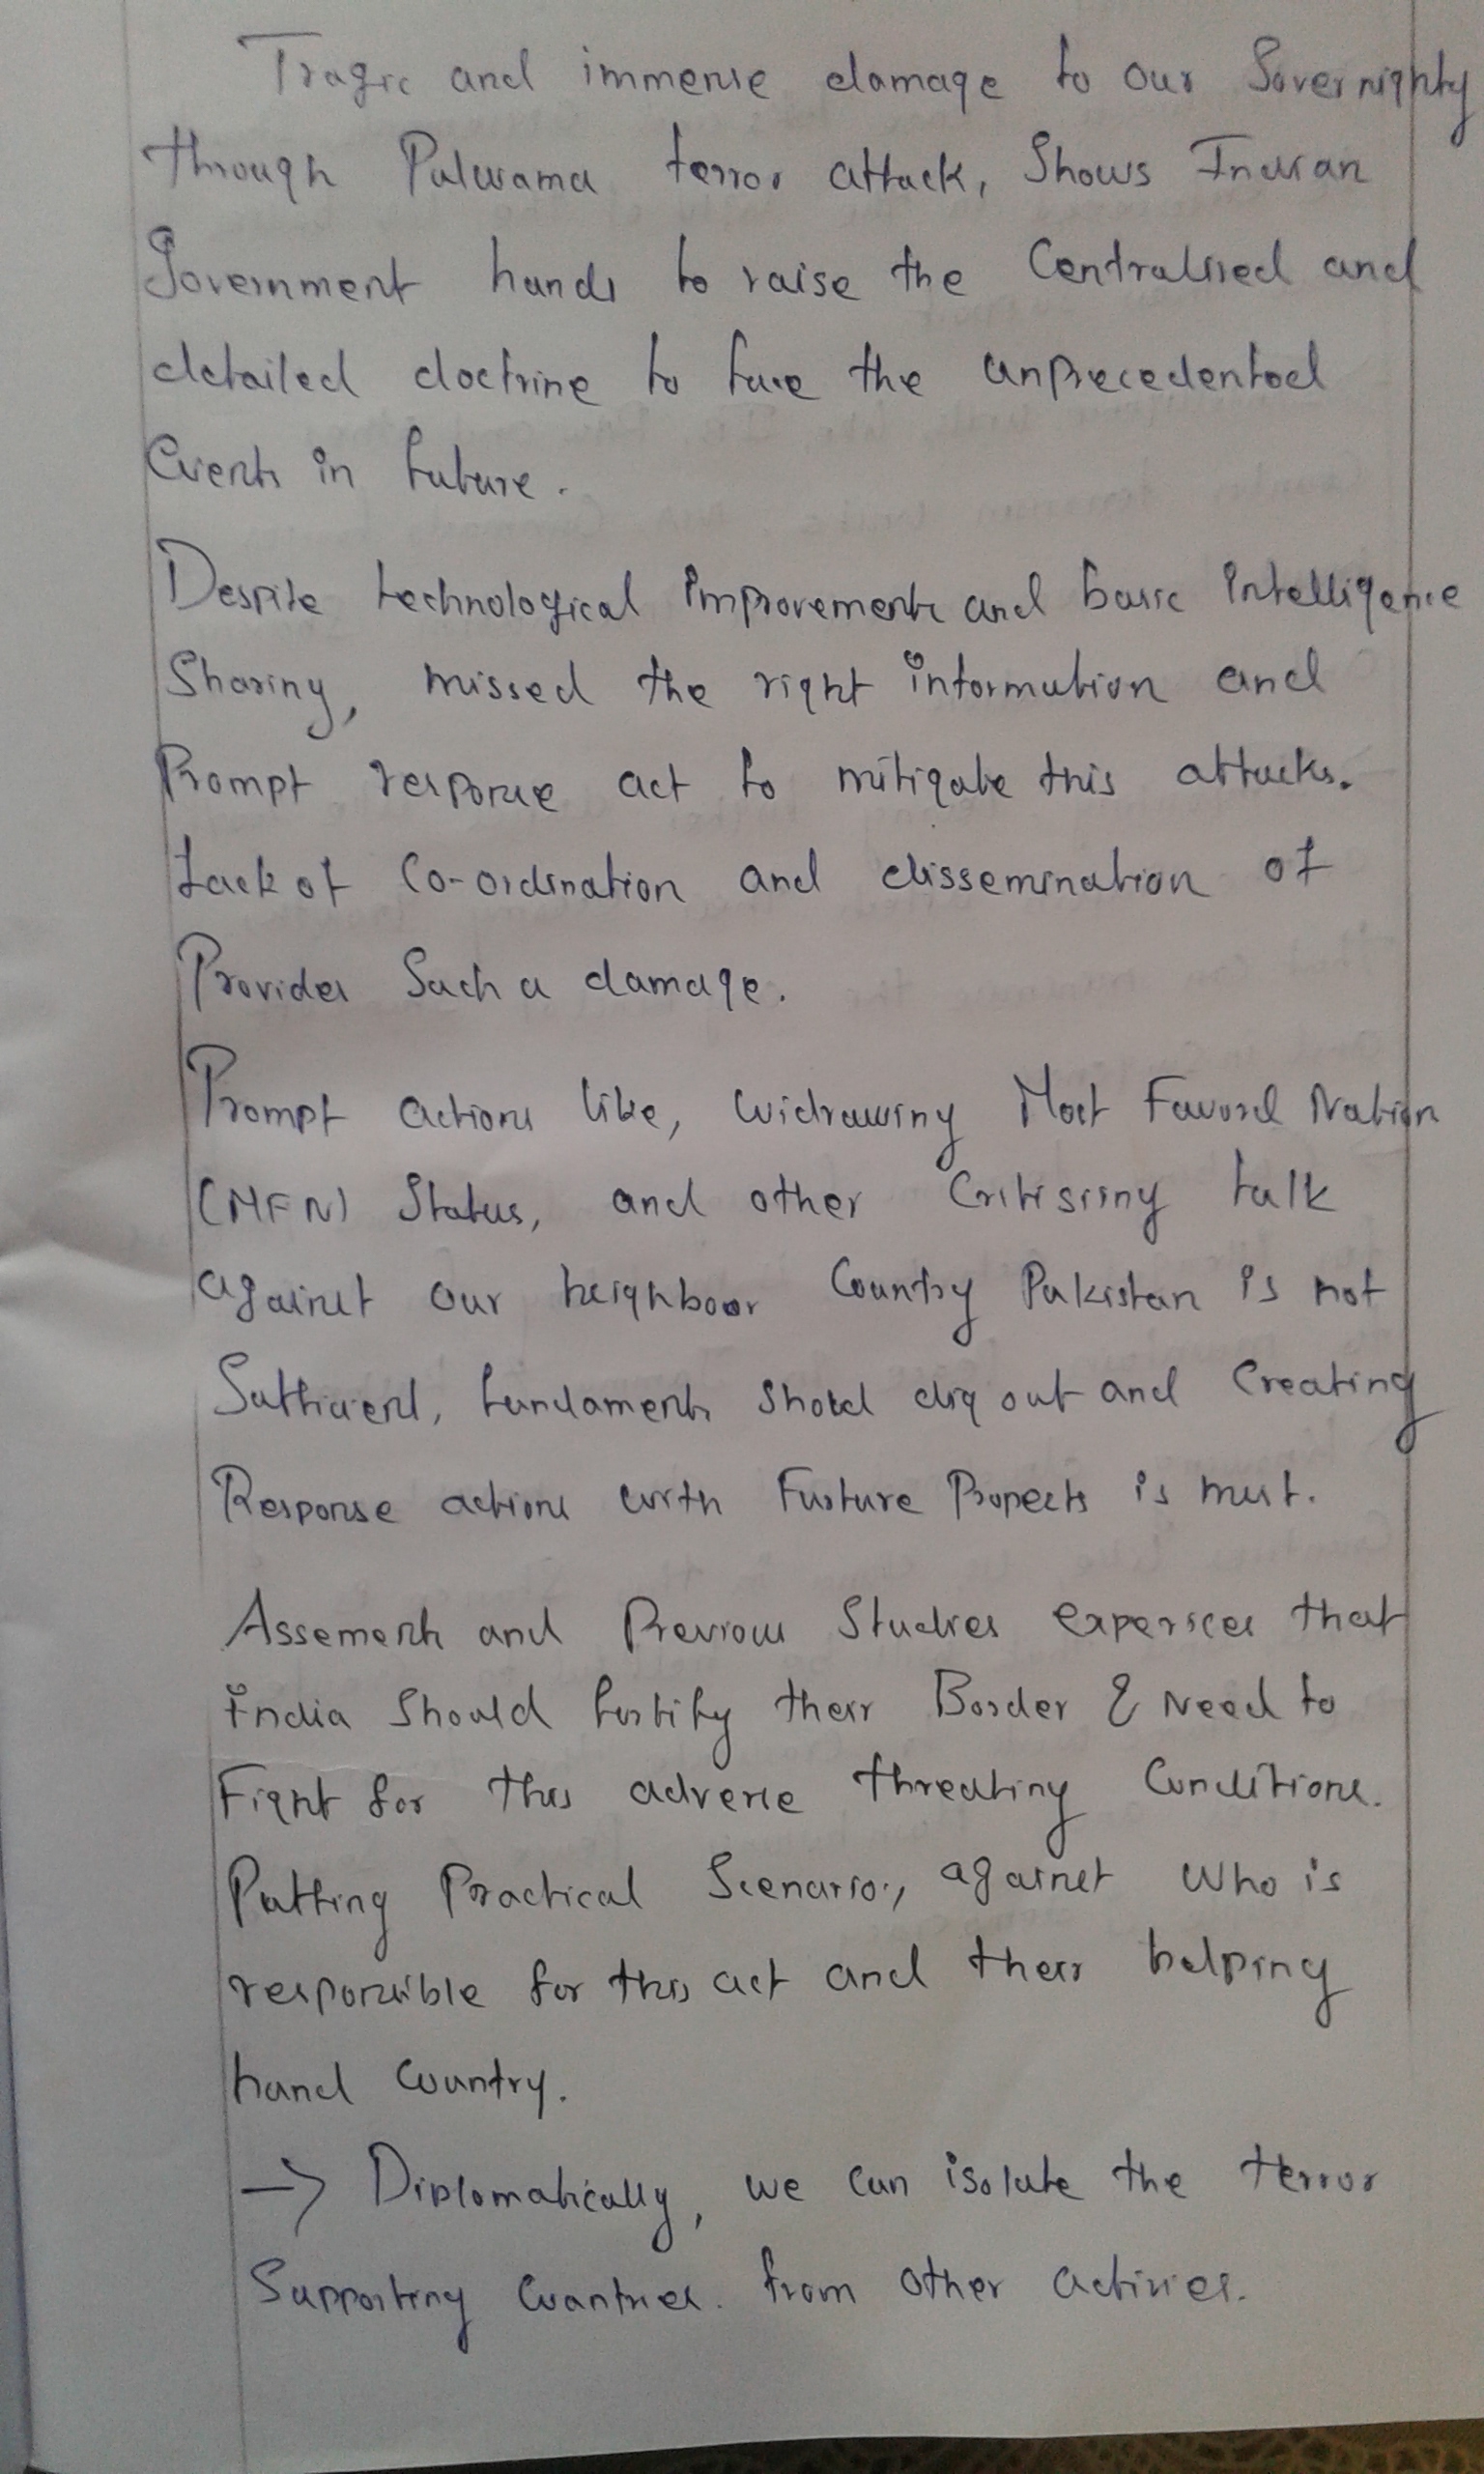 Tragic and immense damage to our Sovernighty
through Pulwama terror attack, Shows Indian
Government hands to raise the Centralised and
detailed doctrine to face the unprecedented
Events in future.
Despite technological improvements and basic intelligence
Sharing, missed the right information and
Prompt response act to mitigate this attacks.
Lack of Co-ordination and dissemination of
Provides Such a damage.
Prompt actions like, widrawing Most Favord Nation
(MFN) Status, and other Critisising talk
against our neighboor Country Pakistan is not
Sufficient, fundaments shold dig out and Creating
Response actions with Furture Propects is must.
Assements and Previous Studies experices that
india Should fortify their Border & Need to
Fight for this adverse threating Conditions.
Putting Practical Scenario, against who is
responsible for this act and their helping
hand Country.
→ Diplomatically, we can isolate the terror
Supporting Countries. from other activies.